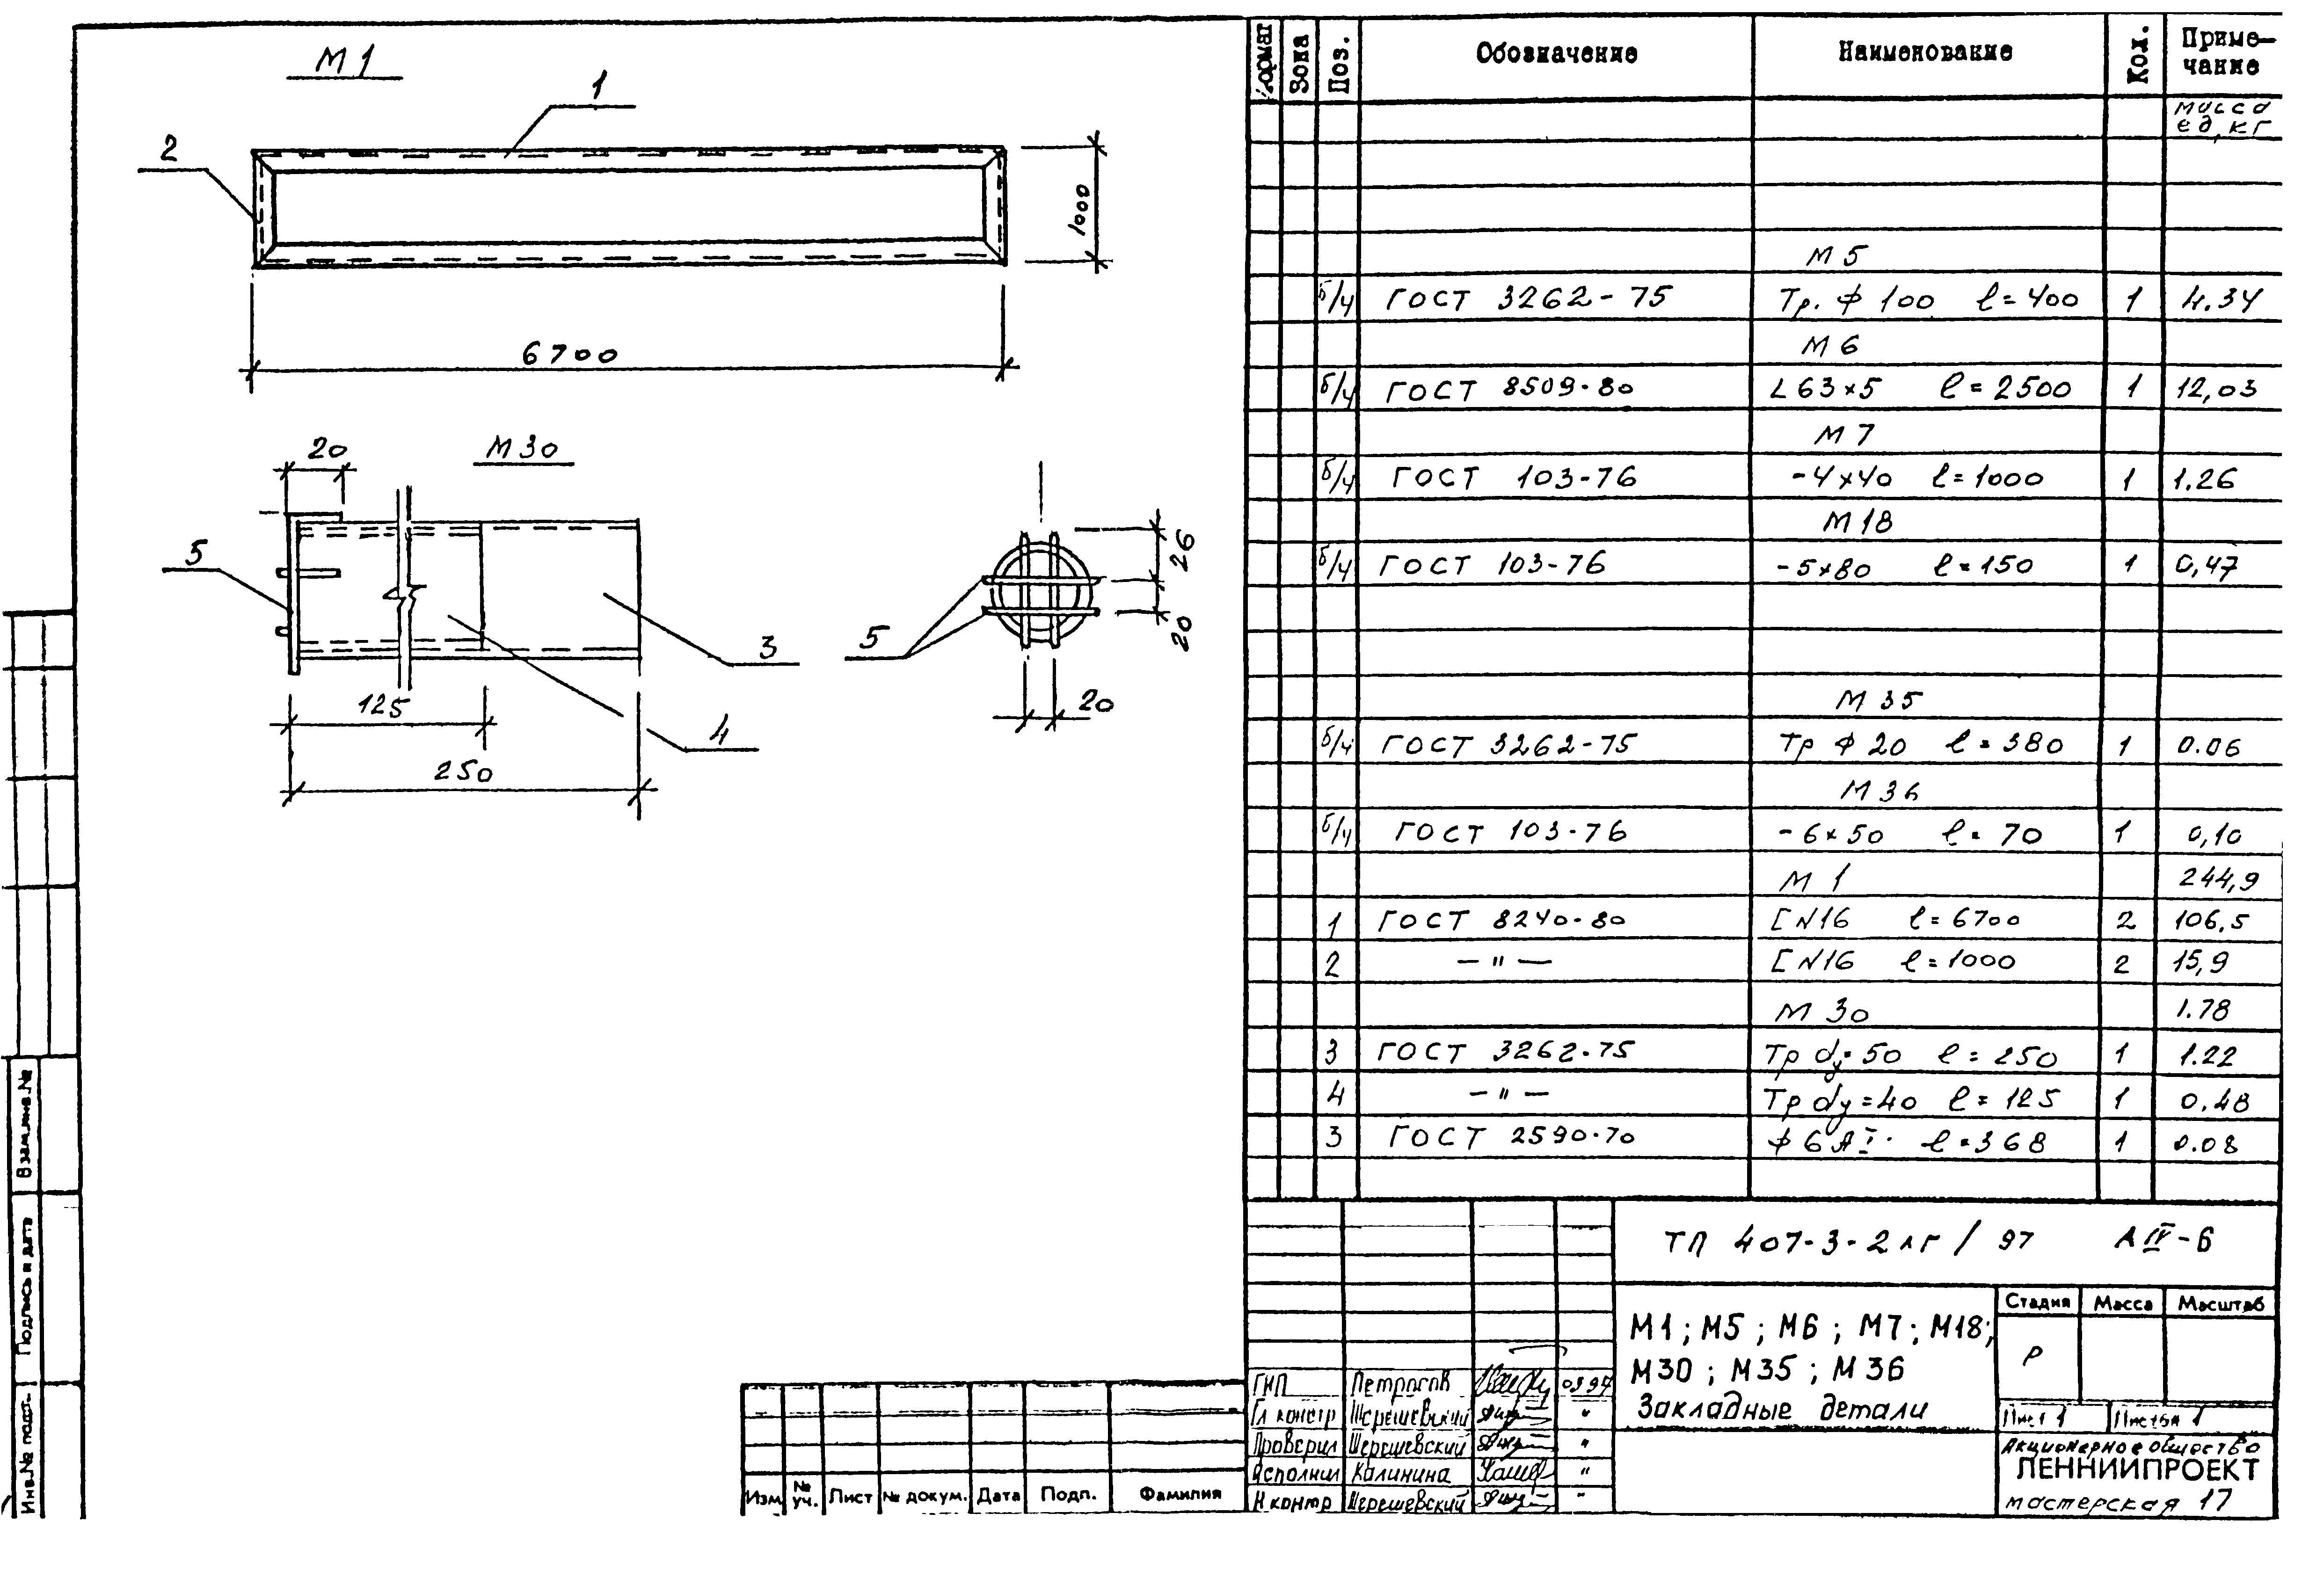 М1
1
2
1000
6700
М30
20
5
3
4
125
250
5
26
20
20
Формат Зона Поз. Обозначение Наименование Кол. Приме-
чание
масса
ед, кг
М5
б/ч ГОСТ 3262-75 Тр. ф 100 ℓ=400 1 4.34
М6
б/ч ГОСТ 8509-80 L 63×5 ℓ=2500 1 12,03
М7
б/ч ГОСТ 103-76 -4×40 ℓ=1000 1 1.26
М18
б/ч ГОСТ 103-76 -5×80 ℓ=150 1 0,47
М35
б/ч ГОСТ 3262-75 Тр ф 20 ℓ=380 1 0.06
М36
б/ч ГОСТ 103-76 -6×50 ℓ=70 1 0,10
М1 244,9
1 ГОСТ 8240-80 [ N16 ℓ=6700 2 106,5
2 — " — [ N16 ℓ=1000 2 15,9
М30 1.78
3 ГОСТ 3262-75 Тр dу=50 ℓ=250 1 1.22
4 — " — Тр dу=40 ℓ=125 1 0.48
3 ГОСТ 2590-70 ф 6 АI ℓ=368 1 0.08
ТП 407-3-2лг / 97 А IV-6
М1; М5; М6; М7; М18;
М30; М35; М36
Закладные детали
Стадия Масса Масштаб
Р
Лист 1 Листов 1
Акционерное общество
ЛЕННИИПРОЕКТ
мастерская 17
ГИП Петросов 0397
Гл констр Шерешевский "
Проверил Шерешевский "
Исполнил Калинина "
Н контр Шерешевский "
Изм № уч. Лист № докум. Дата Подп. Фамилия
Взам.инв.№
Подпись и дата
Инв.№ подл.